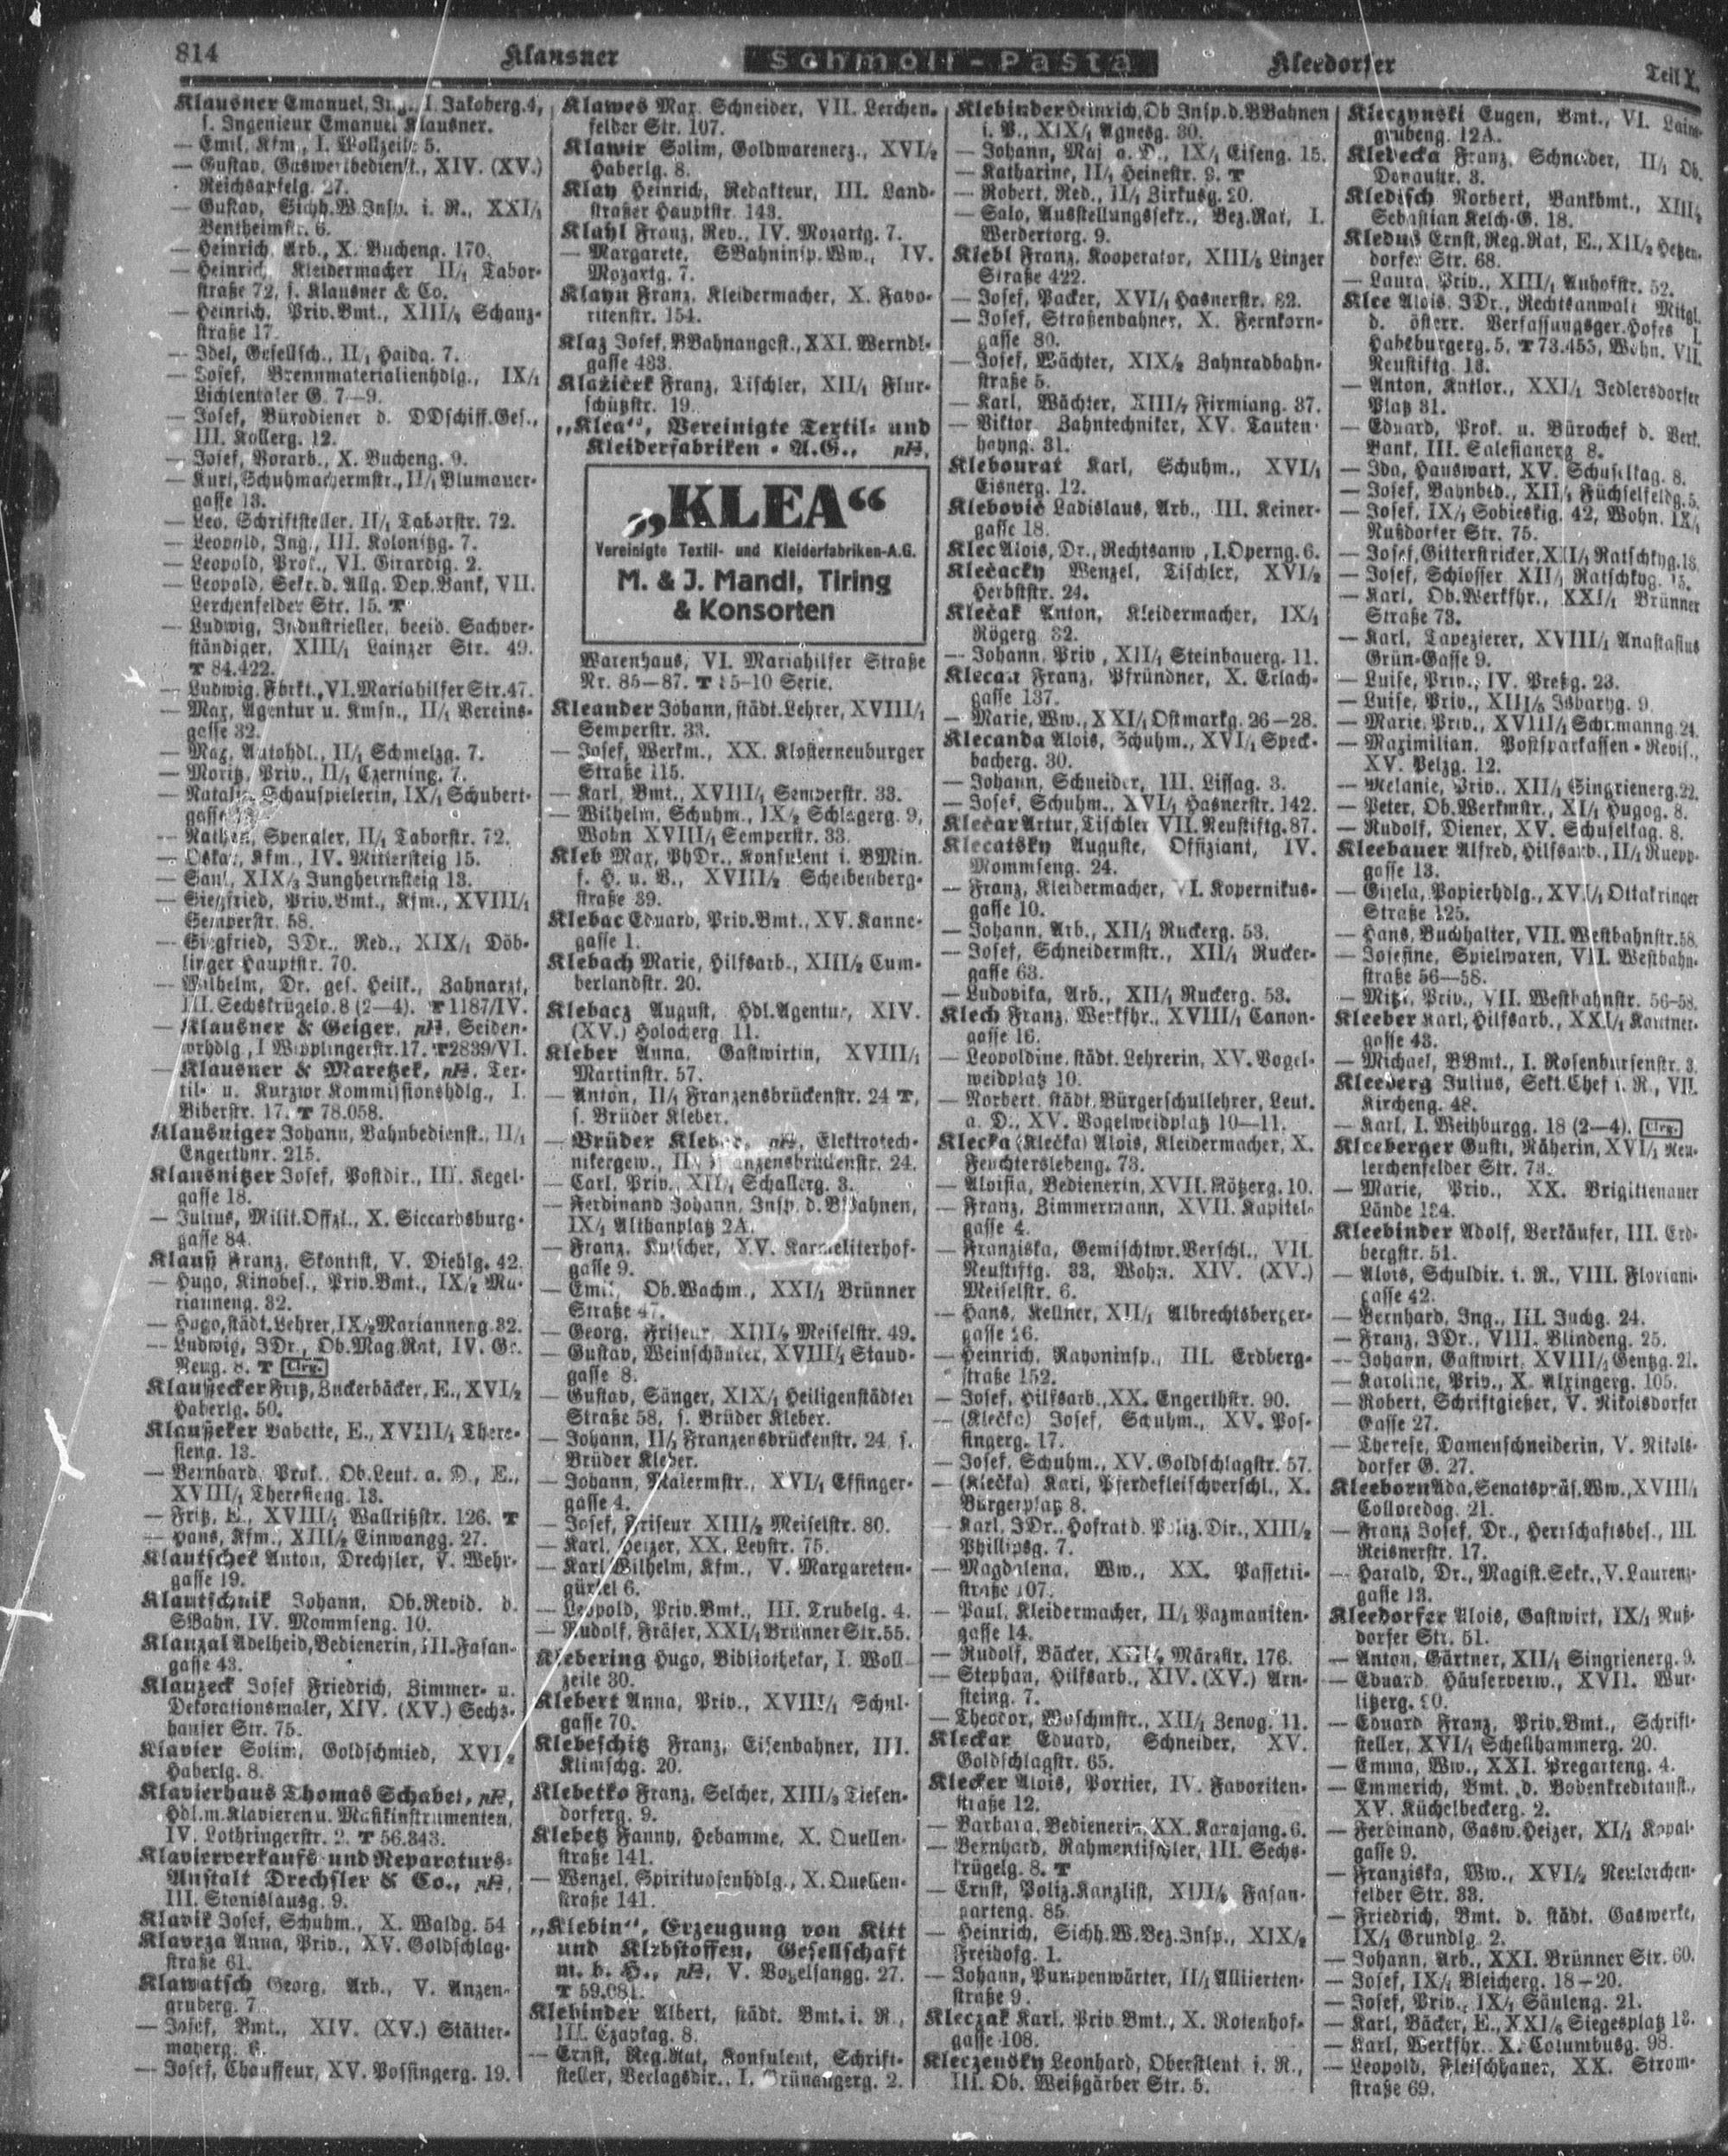 814 Klausner Schmoll-Pasta Kleedorfer Teil I.
Klausner Emanuel, Ing., I. Jakoberg. 4,
s. Ingenieur Emanuel Klausner.
— Emil, Kfm., I. Wollzeile 5.
— Gustav, Gaswerkbedienst., XIV. (XV.)
Reichsapfelg. 27.
— Gustav, Sichh.W.Insp. i. R., XXI/1
Bentheimstr. 6.
— Heinrich, Arb., X. Bucheng. 170.
— Heinrich, Kleidermacher II/1 Tabor-
straße 72, s. Klausner & Co.
— Heinrich, Priv.Bmt., XIII/9 Schanz-
straße 17.
— Idel, Gesellsch., II/1 Haidg. 7.
— Josef, Brennmaterialienhdlg., IX/1
Lichtentaler G. 7—9.
— Josef, Bürodiener d. DDschiff.Ges.,
III. Kollerg. 12.
— Josef, Vorarb., X. Bucheng. 9.
— Kurl, Schuhmachermstr., II/1 Blumauer-
gasse 13.
— Leo, Schriftsteller, II/1 Taborstr. 72.
— Leopold, Ing., III. Kolonitzg. 7.
— Leopold, Prof., VI. Girardig. 2.
— Leopold, Sekr. d. Allg. Dep.Bank, VII.
Lerchenfelder Str. 15. T
— Ludwig, Industrieller, beeid. Sachver-
ständiger, XIII/1 Lainzer Str. 49.
T 84.422.
— Ludwig, Fbrkt., VI. Mariahilfer Str. 47.
— Max, Agentur u. Kmsn., II/1 Vereins-
gasse 32.
— Max, Autohdl., II/1 Schmelzg. 7.
— Moritz, Priv., II/1 Czerning. 7.
— Natalie, Schauspielerin, IX/1 Schubert-
gasse
— Nathan, Spengler, II/1 Taborstr. 72.
— Oskar, Kfm., IV. Mittersteig 15.
— Saul, XIX/3 Jungherrnsteig 13.
— Siegfried, Priv.Bmt., Kfm., XVIII/1
Semperstr. 58.
— Siegfried, JDr., Red., XIX/1 Döb-
linger Hauptstr. 70.
— Wilhelm, Dr. ges. Heilk., Zahnarzt,
III. Sechskrügelg. 8 (2—4). T 1187/IV.
— Klausner & Geiger, pH, Seiden-
wrhdlg., I Wipplingerstr. 17. T 2839/VI.
— Klausner & Maretzek, pH, Tex-
til- u. Kurzwr.Kommissionshdlg., I.
Biberstr. 17. T 78.058.
Klausniger Johann, Bahnbedienst., II/1
Engerthstr. 215.
Klausnitzer Josef, Postdir., III. Kegel-
gasse 18.
— Julius, Milit.Offzl., X. Siccardsburg-
gasse 84.
Klauß Franz, Skontist, V. Diehlg. 42.
— Hugo, Kinobes., Priv.Bmt., IX/2 Ma-
rianneng. 32.
— Hugo, städt. Lehrer, IX/2 Marianneng. 32.
— Ludwig, JDr., Ob.Mag.Rat, IV. Gr.
Neug. 8. T Clrg.
Klaußecker Fritz, Zuckerbäcker, E., XVI/2
Haberlg. 50.
Klaußeker Babette, E., XVIII/1 There-
sieng. 13.
— Bernhard, Prof., Ob.Leut. a. D., E.,
XVIII/1 Theresieng. 13.
— Fritz, E., XVIII/1 Wallrißstr. 126. T
— Hans, Kfm., XIII/2 Einwangg. 27.
Klautschek Anton, Drechsler, V. Wehr-
gasse 19.
Klautschnik Johann, Ob.Revid. d.
SBahn, IV. Mommseng. 10.
Klauzal Adelheid, Bedienerin, III. Fasan-
gasse 43.
Klauzeck Josef Friedrich, Zimmer- u.
Dekorationsmaler, XIV. (XV.) Sechs-
hauser Str. 75.
Klavier Solim, Goldschmied, XVI/2
Haberlg. 8.
Klavierhaus Thomas Schabel, pH,
Hdl. m. Klavieren u. Musikinstrumenten,
IV. Lothringerstr. 2. T 56.343.
Klavierverkaufs- und Reparaturs-
Anstalt Drechsler & Co., pH,
III. Stanislausg. 9.
Klavik Josef, Schuhm., X. Waldg. 54
Klavrza Anna, Priv., XV. Goldschlag-
straße 61.
Klawatsch Georg, Arb., V. Anzen-
gruberg. 7.
— Josef, Bmt., XIV. (XV.) Stätter-
mayerg. 6.
— Josef, Chauffeur, XV. Possingerg. 19.
Klawes Max, Schneider, VII. Lerchen-
felder Str. 107.
Klawir Solim, Goldwarenerz., XVI/2
Haberlg. 8.
Klay Heinrich, Redakteur, III. Land-
straßer Hauptstr. 143.
Klayl Franz, Rev., IV. Mozartg. 7.
— Margarete, SBahninsp.Ww., IV.
Mozartg. 7.
Klayn Franz, Kleidermacher, X. Favo-
ritenstr. 154.
Klaz Josef, BBahnangest., XXI. Werndl-
gasse 483.
Klažiček Franz, Tischler, XII/1 Flur-
schützstr. 19.
„Klea“, Vereinigte Textil- und
Kleiderfabriken - A.G., pH,
„KLEA“
Vereinigte Textil- und Kleiderfabriken-A.G.
M. & J. Mandl, Tiring
& Konsorten
Warenhaus, VI. Mariahilfer Straße
Nr. 85—87. T 15-10 Serie.
Kleander Johann, städt. Lehrer, XVIII/1
Semperstr. 33.
— Josef, Werkm., XX. Klosterneuburger
Straße 115.
— Karl, Bmt., XVIII/1 Semperstr. 33.
— Wilhelm, Schuhm., IX/2 Schlagerg. 9,
Wohn XVIII/1 Semperstr. 33.
Kleb Max, PhDr., Konsulent i. BMin.
f. H. u. V., XVIII/2 Scheibenberg-
straße 39.
Klebac Eduard, Priv.Bmt., XV. Kanne-
gasse 1.
Klebach Marie, Hilfsarb., XIII/2 Cum-
berlandstr. 20.
Klebacz August, Hdl.Agentur, XIV.
(XV.) Holocherg. 11.
Kleber Anna, Gastwirtin, XVIII/1
Martinstr. 57.
— Anton, II/1 Franzensbrückenstr. 24 T,
s. Brüder Kleber.
— Brüder Kleber, pH, Elektrotech-
nikergew., II/1 Franzensbrückenstr. 24.
— Carl, Priv., XII/1 Schallerg. 3.
— Ferdinand Johann, Insp. d. BBahnen,
IX/1 Althanplatz 2A.
— Franz, Kutscher, XV. Karmeliterhof-
gasse 9.
— Emil, Ob.Wachm., XXI/1 Brünner
Straße 47.
— Georg, Friseur, XIII/2 Meiselstr. 49.
— Gustav, Weinschänker, XVIII/1 Staud-
gasse 8.
— Gustav, Sänger, XIX/1 Heiligenstädter
Straße 58, s. Brüder Kleber.
— Johann, II/1 Franzensbrückenstr. 24 s.
Brüder Kleber.
— Johann, Malermstr., XVI/1 Effinger-
gasse 4.
— Josef, Friseur XIII/2 Meiselstr. 80.
— Karl, Heizer, XX. Leystr. 75.
— Karl Wilhelm, Kfm., V. Margareten-
gürtel 6.
— Leopold, Priv.Bmt., III. Trubelg. 4.
— Rudolf, Fräser, XXI/1 Brünner Str. 55.
Klebering Hugo, Bibliothekar, I. Woll-
zeile 30.
Klebert Anna, Priv., XVIII/1 Schul-
gasse 70.
Klebeschitz Franz, Eisenbahner, III.
Klimschg. 20.
Klebetko Franz, Selcher, XIII/3 Tiefen-
dorferg. 9.
Klebetz Fanny, Hebamme, X. Quellen-
straße 141.
— Wenzel, Spirituosenhdlg., X. Quellen-
straße 141.
„Klebin“, Erzeugung von Kitt
und Klebstoffen, Gesellschaft
m. b. H., pH, V. Vogelsangg. 27.
T 59.081.
Klebinder Albert, städt. Bmt. i. R.,
III. Czapkag. 8.
— Ernst, Reg.Rat, Konsulent, Schrift-
steller, Verlagsdir., I. Grünangerg. 2.
Klebinder Heinrich, Ob.Insp. d. BBahnen
i. P., XIX/1 Agnesg. 30.
— Johann, Maj. a. D., IX/1 Eiseng. 15.
— Katharine, II/1 Heinestr. 9. T
— Robert, Red., II/1 Zirkusg. 20.
— Salo, Ausstellungssekr., Bez.Rat, I.
Werdertorg. 9.
Klebl Franz, Kooperator, XIII/5 Linzer
Straße 422.
— Josef, Packer, XVI/1 Hasnerstr. 82.
— Josef, Straßenbahner, X. Fernkorn-
gasse 80.
— Josef, Wächter, XIX/2 Zahnradbahn-
straße 5.
— Karl, Wächter, XIII/7 Firmiang. 37.
— Viktor, Zahntechniker, XV. Tauten-
hayng. 31.
Klebourat Karl, Schuhm., XVI/1
Eisnerg. 12.
Klebovič Ladislaus, Arb., III. Keiner-
gasse 18.
Klec Alois, Dr., Rechtsanw., I. Operng. 6.
Klečacky Wenzel, Tischler, XVI/2
Herbststr. 24.
Klečak Anton, Kleidermacher, IX/1
Rögerg. 32.
— Johann, Priv., XII/1 Steinbauerg. 11.
Klecan Franz, Pfründner, X. Erlach-
gasse 137.
— Marie, Ww., XXI/1 Ostmarkg. 26—28.
Klecanda Alois, Schuhm., XVI/1 Speck-
bacherg. 30.
— Johann, Schneider, III. Lissag. 3.
— Josef, Schuhm., XVI/1 Hasnerstr. 142.
Klečar Artur, Tischler VII. Neustiftg. 87.
Klecatsky Auguste, Offiziant, IV.
Mommseng. 24.
— Franz, Kleidermacher, VI. Kopernikus-
gasse 10.
— Johann, Arb., XII/1 Ruckerg. 53.
— Josef, Schneidermstr., XII/1 Rucker-
gasse 63.
— Ludovika, Arb., XII/1 Ruckerg. 53.
Klech Franz, Werkfhr., XVIII/1 Canon-
gasse 16.
— Leopoldine, städt. Lehrerin, XV. Vogel-
weidplatz 10.
— Norbert, städt. Bürgerschullehrer, Leut.
a. D., XV. Vogelweidplatz 10—11.
Klecka (Klečka) Alois, Kleidermacher, X.
Feuchterslebeng. 73.
— Aloisia, Bedienerin, XVII. Rötzerg. 10.
— Franz, Zimmermann, XVII. Kapitel-
gasse 4.
— Franziska, Gemischtwr.Verschl., VII.
Neustiftg. 33, Wohn. XIV. (XV.)
Meiselstr. 6.
— Hans, Kellner, XII/1 Albrechtsberger-
gasse 26.
— Heinrich, Rayoninsp., III. Erdberg-
straße 152.
— Josef, Hilfsarb., XX. Engerthstr. 90.
— (Klečka) Josef, Schuhm., XV. Pos-
singerg. 17.
— Josef, Schuhm., XV. Goldschlagstr. 57.
— (Klečka) Karl, Pferdefleischverschl., X.
Bürgerplatz 8.
— Karl, JDr., Hofrat d. Poliz.Dir., XIII/2
Phillipsg. 7.
— Magdalena, Ww., XX. Passetti-
straße 107.
— Paul, Kleidermacher, II/1 Pazmaniten-
gasse 14.
— Rudolf, Bäcker, XIII/2 Märzstr. 176.
— Stephan, Hilfsarb., XIV. (XV.) Arn-
steing. 7.
— Theodor, Waschmstr., XII/1 Zenog. 11.
Kleckar Eduard, Schneider, XV.
Goldschlagstr. 65.
Klecker Alois, Portier, IV. Favoriten-
straße 12.
— Barbara, Bedienerin, XX. Karajang. 6.
— Bernhard, Rahmentischler, III. Sechs-
krügelg. 8. T
— Ernst, Poliz.Kanzlist, XIII/5 Fasan-
garteng. 85.
— Heinrich, Sichh.W.Bez.Insp., XIX/2
Freihofg. 1.
— Johann, Pumpenwärter, II/1 Alliierten-
straße 9.
Kleczak Karl, Priv.Bmt., X. Rotenhof-
gasse 108.
Kleczensky Leonhard, Oberstleut. i. R.,
III. Ob. Weißgärber Str. 5.
Kleczynski Eugen, Bmt., VI. Laim-
grubeng. 12A.
Kledecka Franz, Schneider, II/1 Ob.
Donaustr. 3.
Kledisch Norbert, Bankbmt., XIII/2
Sebastian Kelch-G. 18.
Kledus Ernst, Reg.Rat, E., XII/2 Hetzen-
dorfer Str. 68.
— Laura, Priv., XIII/1 Auhofstr. 52.
Klee Alois, JDr., Rechtsanwalt, Mitgl.
d. österr. Verfassungsger.Hofes I.
Habsburgerg. 5, T 73.455, Wohn. VII.
Neustiftg. 13.
— Anton, Kntlor., XXI/1 Jedlersdorfer
Platz 31.
— Eduard, Prok. u. Bürochef d. Verk.
Bank, III. Salesianerg. 8.
— Ida, Hauswart, XV. Schuselkag. 8.
— Josef, Bahnbed., XII/1 Füchselfeldg. 5.
— Josef, IX/1 Sobieskig. 42, Wohn. IX/1
Nußdorfer Str. 75.
— Josef, Gitterstricker, XII/1 Ratschkyg. 13.
— Josef, Schlosser XII/1 Ratschkyg. 15.
— Karl, Ob.Werkfhr., XXI/1 Brünner
Straße 73.
— Karl, Tapezierer, XVIII/1 Anastasius
Grün-Gasse 9.
— Luise, Priv., IV. Preßg. 23.
— Luise, Priv., XIII/5 Isbaryg. 9.
— Marie, Priv., XVIII/1 Schumanng. 24.
— Maximilian, Postsparkassen - Revis.,
XV. Pelzg. 12.
— Melanie, Priv., XII/1 Singrienerg. 22.
— Peter, Ob.Werkmstr., XI/1 Hugog. 8.
— Rudolf, Diener, XV. Schuselkag. 8.
Kleebauer Alfred, Hilfsarb., II/1 Ruepp-
gasse 13.
— Gisela, Papierhdlg., XVI/1 Ottakringer
Straße 125.
— Hans, Buchhalter, VII. Westbahnstr. 58.
— Josefine, Spielwaren, VII. Westbahn-
straße 56—58.
— Mitzi, Priv., VII. Westbahnstr. 56-58.
Kleeber Karl, Hilfsarb., XXI/1 Kantner-
gasse 43.
— Michael, BBmt., I. Rosenbursenstr. 3.
Kleeberg Julius, Sekt.Chef i. R., VII.
Kircheng. 48.
— Karl, I. Weihburgg. 18 (2—4). Clrg.
Kleeberger Gusti, Näherin, XVI/1 Neu-
lerchenfelder Str. 73.
— Marie, Priv., XX. Brigittenauer
Lände 124.
Kleebinder Adolf, Verkäufer, III. Erd-
bergstr. 51.
— Alois, Schuldir. i. R., VIII. Floriani-
gasse 42.
— Bernhard, Ing., III. Juchg. 24.
— Franz, JDr., VIII. Blindeng. 25.
— Johann, Gastwirt, XVIII/1 Gentzg. 21.
— Karoline, Priv., X. Alxingerg. 105.
— Robert, Schriftgießer, V. Nikolsdorfer
Gasse 27.
— Therese, Damenschneiderin, V. Nikols-
dorfer G. 27.
Kleeborn Ada, Senatspräs.Ww., XVIII/1
Colloredog. 21.
— Franz Josef, Dr., Herrschaftsbes., III.
Reisnerstr. 17.
— Harald, Dr., Magist.Sekr., V. Laurenz-
gasse 13.
Kleedorfer Alois, Gastwirt, IX/1 Nuß-
dorfer Str. 51.
— Anton, Gärtner, XII/1 Singrienerg. 9.
— Eduard, Häuserverw., XVII. Wur-
litzerg. 90.
— Eduard Franz, Priv.Bmt., Schrift-
steller, XVI/1 Schellhammerg. 20.
— Emma, Ww., XXI. Pregarteng. 4.
— Emmerich, Bmt. d. Bodenkreditanst.,
XV. Küchelbeckerg. 2.
— Ferdinand, Gasw.Heizer, XI/1 Kopal-
gasse 9.
— Franziska, Ww., XVI/2 Neulerchen-
felder Str. 33.
— Friedrich, Bmt. d. städt. Gaswerke,
IX/1 Grundlg. 2.
— Johann, Arb., XXI. Brünner Str. 60.
— Josef, IX/1 Bleicherg. 18—20.
— Josef, Priv., IX/1 Säuleng. 21.
— Karl, Bäcker, E., XXI/6 Siegesplatz 18.
— Karl, Werkfhr. X. Columbusg. 98.
— Leopold, Fleischhauer, XX. Strom-
straße 69.